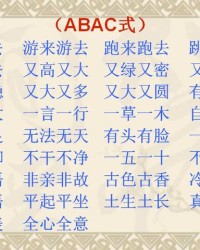 （ABAC式）
游来游去 跑来跑去
又高又大 又绿又密
又大又多 又大又圆
一言一行 一草一木
无法无天 有头有脸
不干不净 一五一十
非亲非故 古色古香
平起平坐 土生土长
全心全意